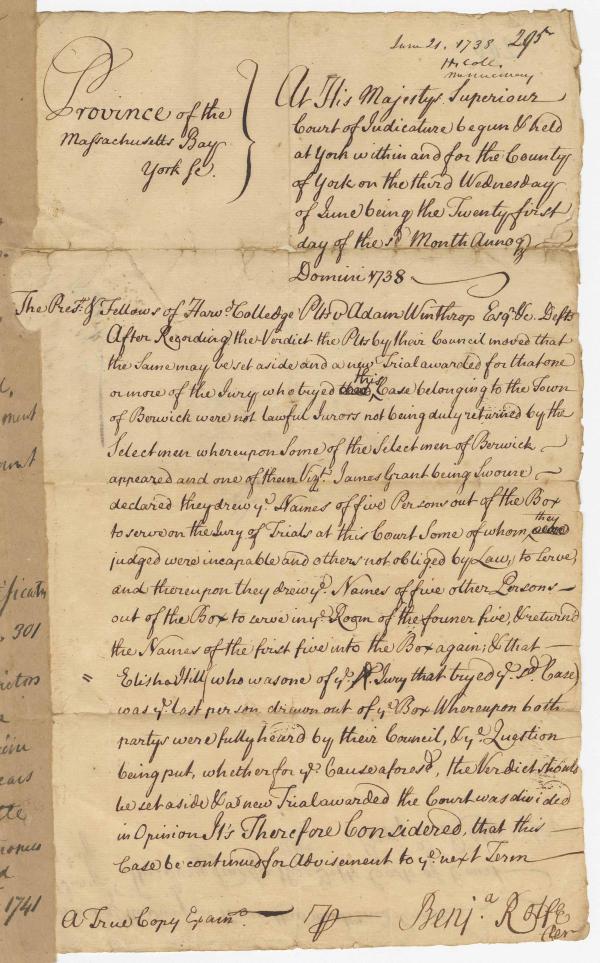 June 21. 1738 295
H. Coll.
Province of the
Massachusetts Bay
York Sc.
At His Majestys Superiour
Court of Judicature begun & held
at York within and for the County
of York on the third Wednesday
of June being the Twenty first
day of the sd. Month Annoq
Domini 1738
The Prest. & Fellows of Harvd. Colledge Plts v Adam Winthrop Esqr. &c. Defts
After Recording the Verdict the Plts by their Council moved that
the Same may be set aside and a new Trial awarded for that one
or more of the Jury who tryed this Case belonging to the Town
of Berwick were not lawful Jurors not being duly returned by the
Select men whereupon Some of the Select men of Berwick
appeared and one of them Vizt. James Grant being Swoure
declared they drew ye. Names of five Persons out of the Box
to serve on the Jury of Trials at this Court Some of whom they
judged were incapable and others not obliged by Law, to Serve
and thereupon they drew ye. Names of five other Persons
out of the Box to serve in ye. Room of the former five, & return'd
the Names of the first five into the Box again; & that
" Elisha Hill (who was one of ye. Jury that tryed ye. sd. Case)
was ye. last person drawn out of ye. Box Whereupon both
partys were fully heard by their Council, & ye. Question
being put, whether for ye. Cause aforesd., the Verdict should
be set aside & a new Trial awarded the Court was divided
in Opinion It's Therefore Considered, that this
Case be continued for Advisement to ye. next Term
A True Copy Examd.
Benja. Rolfe
Cler
ment
301
1741